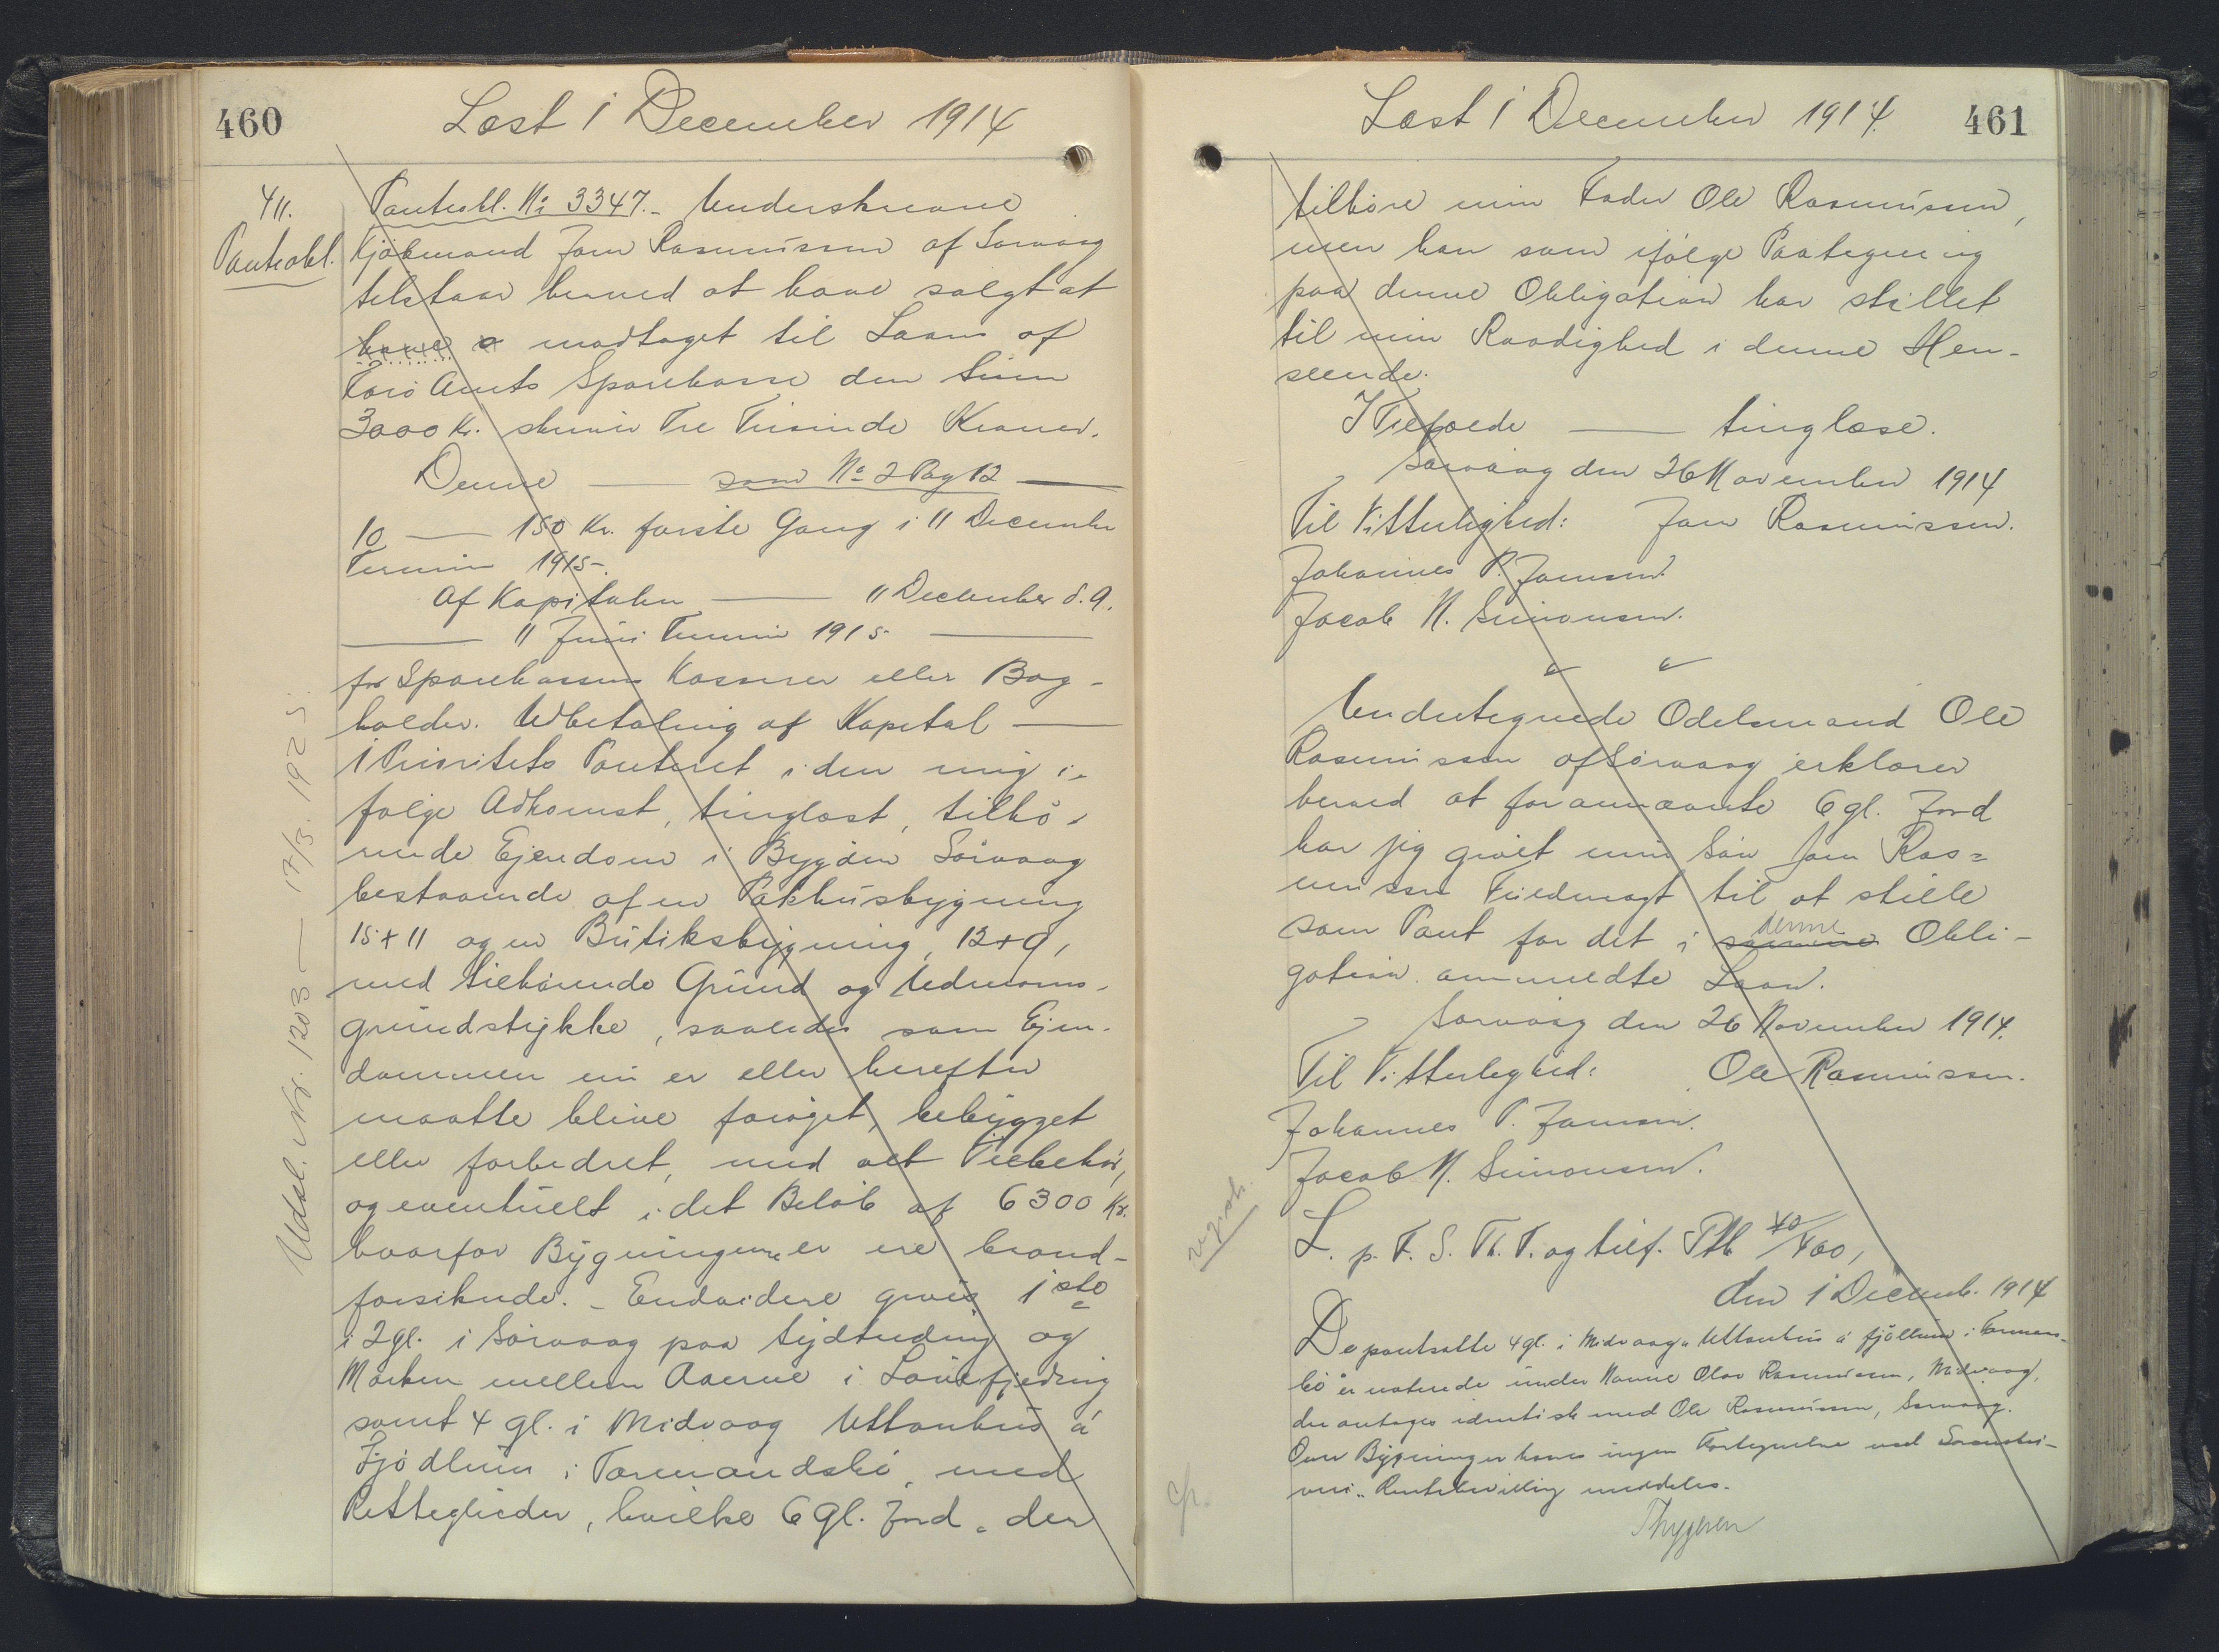 460
Læst 1 December 1914
411.
Panteobl.
Panteobl. No 3347. – Underskrevne
Kjøbmand Jam Rasmussen af Sørvaag
tilstaar herved at have solgt at
have o modtaget til Laans af
Færø Amts Sparekasse den Sum
3000 Kr. skriver Tre Tusinde Kroner.
Denne — som No 2 Pag 12 —
10 — 150 Kr. første Gang i 11 December
Termin 1915.
Af Kapitalen — 11 December d. A.
— 11 Juni Termin 1915 —
for Sparekassens Kasserer eller Bog-
holder. Udbetaling af Kapital —
1 Prioritets Panteret i den mig i-
følge Adkomst, tinglæst, tilhø-
rende Ejendom i Bygden Sørvaag
bestaaende af en Pakhusbygning
15 + 11 og en Butiksbygning, 12 + 9,
med tilhørende Grund og Udmarks-
grundstykke, saaledes som Ejen-
dommen nu er eller herefter
maatte blive forøget, bebygget
eller forbedret, med alt Tilbehør,
og eventuelt i det Beløb af 6300 Kr.
hvorfor Bygningerne er ere brand-
forsikrede. – Endvidere gives 1ste
i 2 gl. i Sørvaag paa
Marken mellem Aaerne i
samt 4 gl. i Midvaag Uttanhus á
Fjødlum i med
Retteglieder, hvilke 6 gl. Jord – der
Udsl. Nr. 1203 — 17/3. 1925.
Læst 1 December 1914.
461
tilhøre min Fader Ole Rasmussen,
men han som ifølge Paategning
paa denne Obligation har stillet
til min Raadighed i denne Hen-
seende.
I Tilfælde — tinglæse.
Sørvaag den 26 November 1914
Til Vitterlighed: Jam Rasmussen.
Johannes P. Joensen.
Jacob N. Simonsen.
Undertegnede Odelsmand Ole
Rasmussen af Sørvaag erklærer
herved at forannævnte 6 gl. Jord
har jig givet min Søn Jam Ras=
mussen Fuldmagt til at stille
denne
som Pant for det i samme Obli-
gation ommeldte Laan.
Sørvaag den 26 November 1914.
Til Vitterlighed: Ole Rasmussen.
Johannes P. Joensen.
Jacob N. Simonsen.
L. p. F. S. Th. T. og tilf. Ptb 40/460,
den 1 Decemb. 1914
De pantsatte 4 gl. i Midvaag Uttanhus á fjøllum i
bø er noterede under Navne Olav Rasmussen, Midvaag,
der antages identisk med Ole Rasmussen, Sørvaag.
Over Bygninger haves ingen Fortegnelse ved Sorenskri-
veri. meddeles.
Thygesen